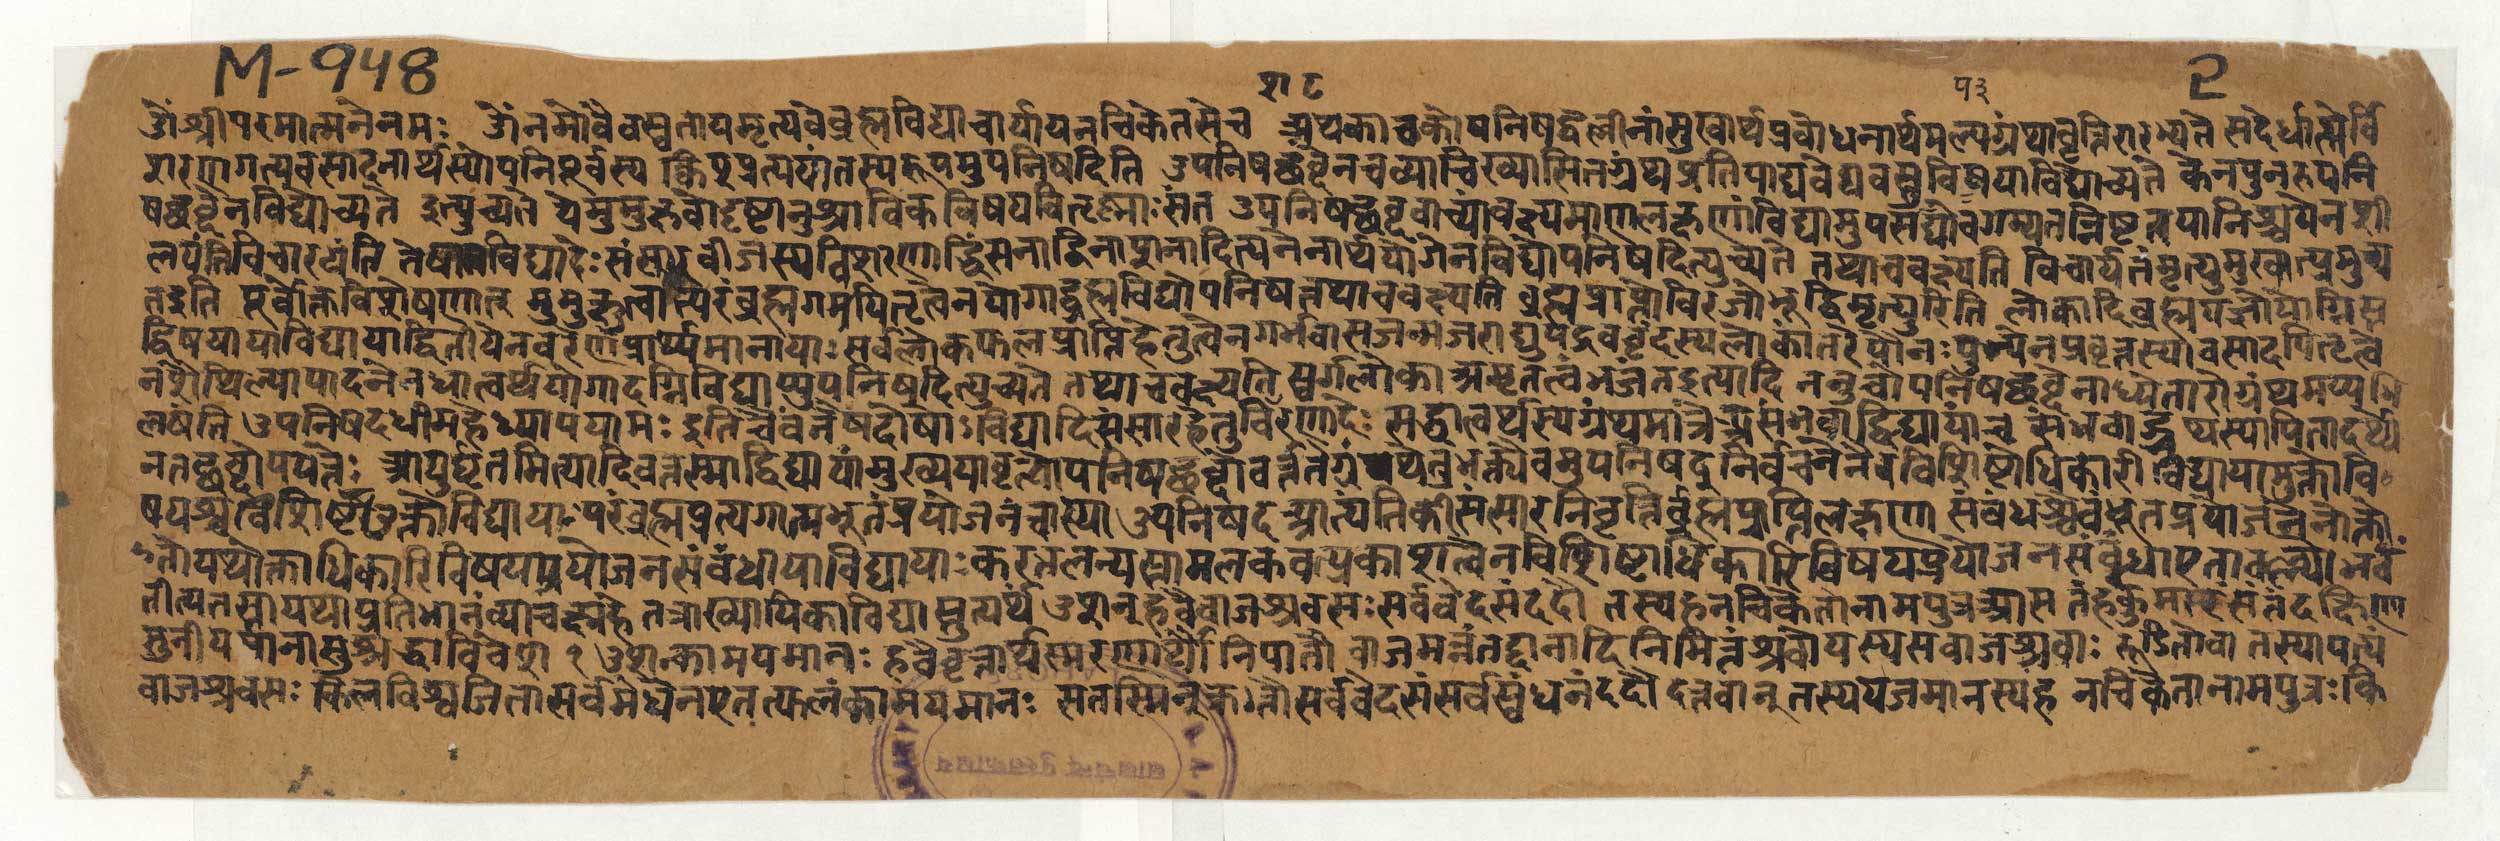 M-948
श८
५३
2
ॐश्रीपरमात्मनेनमः ॐनमोवैवस्वतायमृत्यवेब्रह्मविद्याचार्यायनचिकेतसेच अथकाठकोपनिषद्वल्लीनांसुखार्थप्रबोधनार्थमल्पग्रंथावृत्तिरारभ्यते सदेर्धातोर्वि
शरणगत्यवसादनार्थस्योपनिपूर्वस्य क्विप्प्रत्ययांतस्यरूपमुपनिषदिति उपनिषच्छब्देनचव्याचिख्यासितग्रंथप्रतिपाद्यवेद्यवस्तुविषयाविद्योच्यते केनपुनरुपनि
षच्छब्देनविद्योच्यते इत्युच्यते येमुमुक्षवोदृष्टानुश्राविकविषयवितृष्णाःसंत उपनिषच्छब्दवाच्यांवक्ष्यमाणलक्षणांविद्यामुपसद्योपगम्यतन्निष्टतयानिश्चयेनशी
लयंतिविचारयंति तेषामविद्यादेःसंसारबीजस्यविशरणाद्धिंसनाद्विनाशनादित्यनेनार्थयोगेनविद्योपनिषदित्युच्यते तथाचवक्ष्यति निचार्यतंमृत्युमुखात्प्रमुच्य
तइति पूर्वोक्तविशेषणान् मुमुक्षून्वापरंब्रह्मगमयितृत्वेनयोगाद्ब्रह्मविद्योपनिषत्तथाचवक्ष्यति ब्रह्मप्राप्तोविरजोभूद्विमृत्युरिति लोकादिब्रह्मयज्ञोयोग्निस्त
द्विषयायाविद्यायाद्वितीयेनवरेणप्रार्थ्यमानायाः सर्वलोकफलप्राप्तिहेतुत्वेनगर्भवासजन्मजराद्युपद्रववृंदस्यलोकांतरेपौनःपुन्येनप्रवृत्तस्यावसादयितृत्वे
नशैथिल्यापादनेनधात्वर्थयोगादग्निविद्याप्युपनिषदित्युच्यते तथाचवक्ष्यति स्वर्गलोकाअमृतत्वंभजंतइत्यादि ननुचोपनिषच्छब्देनाध्येतारोग्रंथमप्यभि
लषंति उपनिषदमधीमहेध्यापयामः इतिचैवंनैषदोषोऽविद्यादिसंसारहेतुविशरणादेः सद्धात्वर्थस्यग्रंथमात्रेऽसंभवाद्विद्यायांच संभवाद्ग्रंथस्यापितादर्थ्ये
नतच्छब्दोपपत्तेः आयुर्घृतमित्यादिवत्तस्माद्विद्यायांमुख्ययावृत्त्योपनिषच्छब्दोवर्त्ततेग्रंथेतुभक्त्येवमुपनिषदनिर्वचनेनैवविशिष्टोधिकारी विद्यायामुक्तोवि
षयश्चविशिष्टउक्तोविद्यायाःपरंब्रह्मप्रत्यगात्मभूतंप्रयोजनंचास्या उपनिषदआत्यंतिकीसंसारनिवृत्तिर्ब्रह्मप्राप्तिलक्षणा संबंधश्चैवंभूतप्रयोजनेनोक्तो
ऽतोयथोक्ताधिकारिविषयप्रयोजनसंबंधायाविद्यायाः करतलन्यस्तामलकवत्प्रकाशत्वेनविशिष्टाधिकारिविषयप्रयोजनसंबंधाएतावल्ल्योभवं
तीत्यतस्तायथाप्रतिभानंव्याचक्ष्महे तत्राख्यायिकाविद्यास्तुत्यर्थ उशन्हवैवाजश्रवसः सर्ववेदसंददौ तस्यहनचिकेतानामपुत्रआस तंहकुमारंसंतंदक्षिणा
सुनीयमानासुश्रद्धाविवेश १ उशन्कामयमानः हवैवृत्तार्थस्मरणार्थौनिपातौ वाजमन्नंतद्दानादिनिमित्तंश्रवोयस्यसवाजश्रवाः रूढितोवा तस्यापत्यं
वाजश्रवसः किलविश्वजितासर्वमेधेनएतत्फलंकामयमानः सतस्मिन्क्रतौसर्ववेदसंसर्वस्वंधनंददौ दत्तवान् तस्ययजमानस्यह नचिकेतानामपुत्रःकि
लालचन्द पुस्तकालय